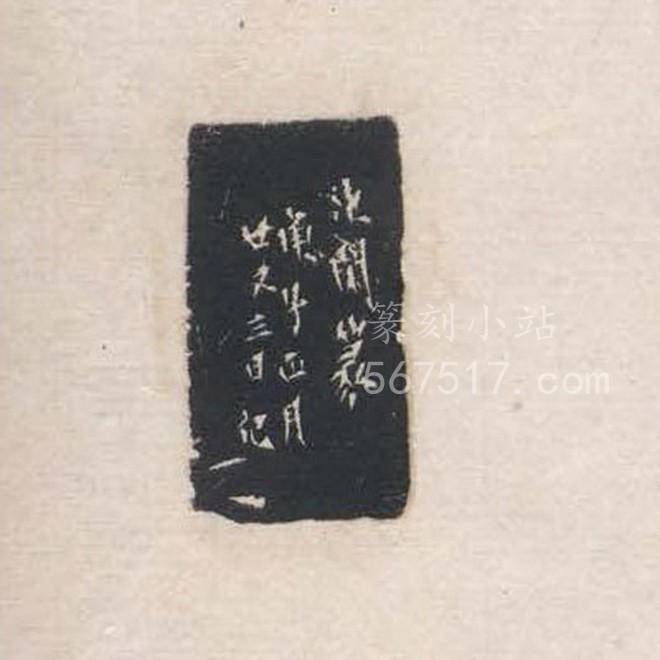 篆
庚子正月
廿又三日记
篆刻小站
567517.com